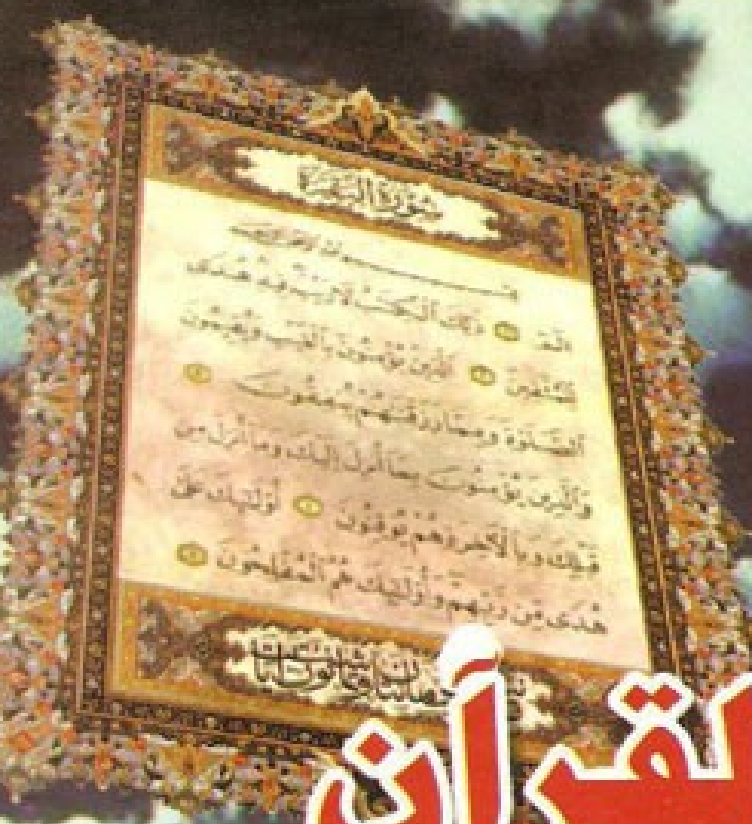 سورة البقرة
الٓمٓ ۝ ذَٰلِكَ ٱلْكِتَٰبُ لَا رَيْبَ فِيهِ هُدًى
لِّلْمُتَّقِينَ ۝ ٱلَّذِينَ يُؤْمِنُونَ بِٱلْغَيْبِ وَيُقِيمُونَ
ٱلصَّلَوٰةَ وَمِمَّا رَزَقْنَٰهُمْ يُنفِقُونَ ۝
وَٱلَّذِينَ يُؤْمِنُونَ بِمَآ أُنزِلَ إِلَيْكَ وَمَآ أُنزِلَ مِن
قَبْلِكَ وَبِٱلْءَاخِرَةِ هُمْ يُوقِنُونَ ۝ أُو۟لَٰٓئِكَ عَلَىٰ
هُدًى مِّن رَّبِّهِمْ وَأُو۟لَٰٓئِكَ هُمُ ٱلْمُفْلِحُونَ ۝
لقرآن